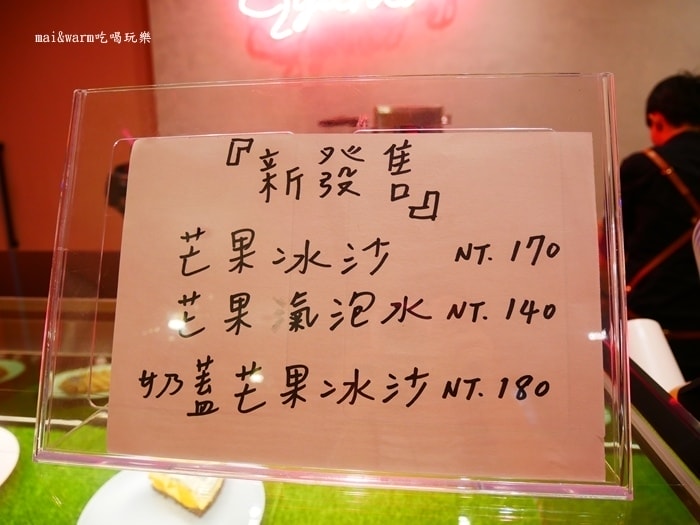 mai&warm吃喝玩樂
『新發售』
芒果冰沙 NT. 170
芒果氣泡水 NT. 140
奶蓋芒果冰沙 NT. 180